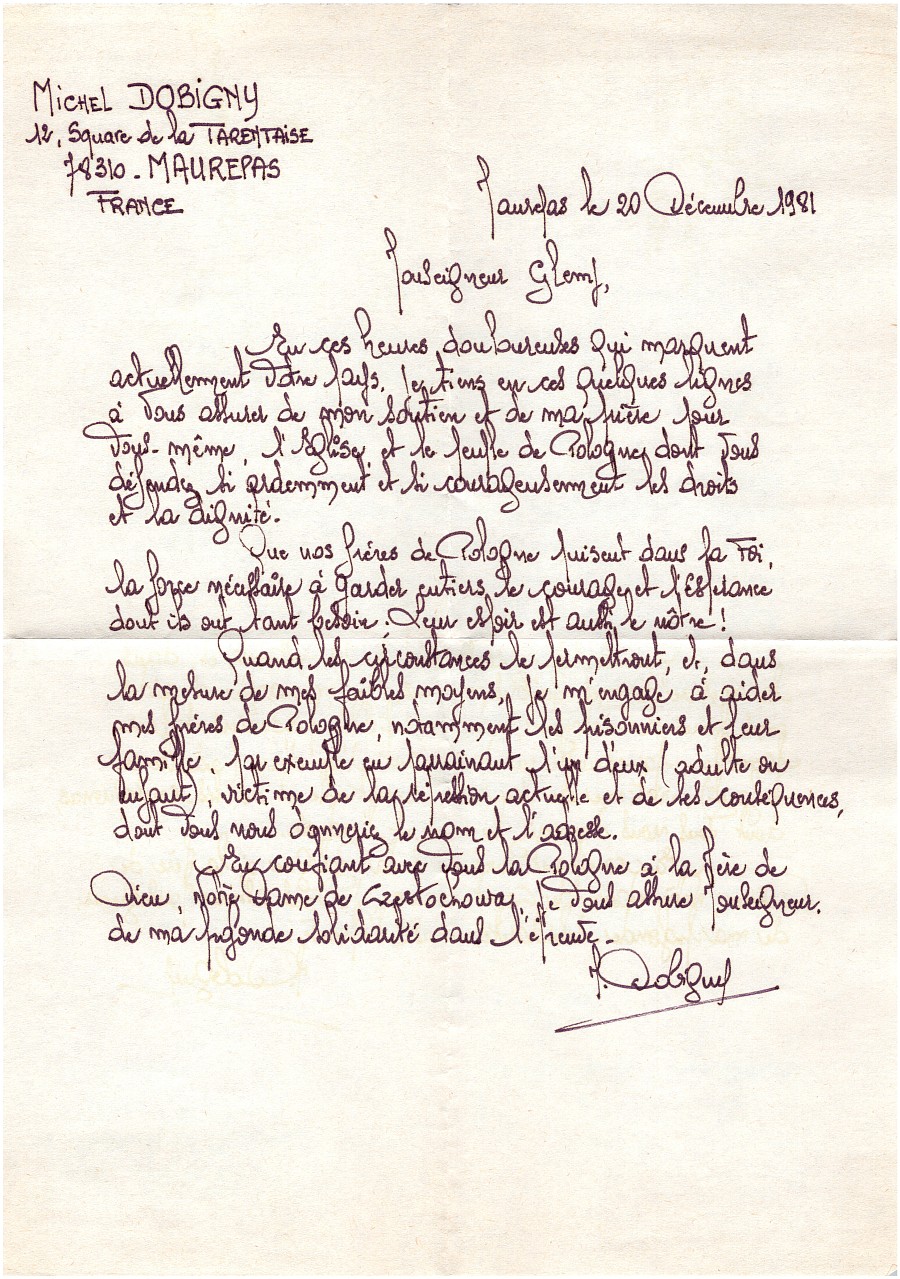 MICHEL DOBIGNY
12, Square de la TARENTAISE
78310 - MAUREPAS
FRANCE
Maurepas le 20 Décembre 1981
Monseigneur Glemp,
En ces heures douloureuses qui marquent
actuellement Votre pays, je tiens en ces quelques lignes
à Vous assurer de mon soutien et de ma prière pour
Vous-même, l'Eglise et le peuple de Pologne dont Vous
défendez si ardemment et si courageusement les droits
et la dignité.
Que nos frères de Pologne puisent dans la Foi,
la force nécessaire à garder entiers le courage et l'Espérance
dont ils ont tant besoin ; Leur espoir est aussi le nôtre !
Quand les circonstances le permettront, et, dans
la mesure de mes faibles moyens, je m'engage à aider
mes frères de Pologne, notamment les prisonniers et leur
famille, par exemple en parrainant l'un d'eux (adulte ou
enfant), victime de la répression actuelle et de ses conséquences,
dont Vous nous donneriez le nom et l'adresse.
En confiant avec Vous la Pologne à la Mère de
Dieu, Notre Dame de Czestochowa, je Vous assure Monseigneur,
de ma profonde solidarité dans l'épreuve.
M. Dobigny